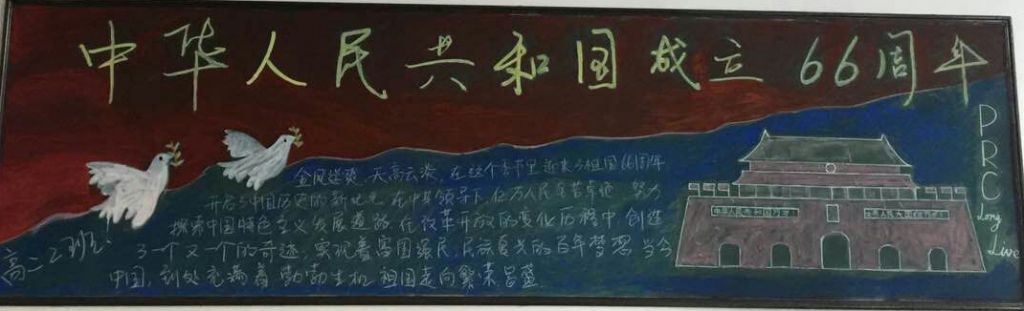 中华人民共和国成立66周年
金风送爽,天高云淡,在这个季节里迎来了祖国66周年
开启了中国历史的新纪元,在中共领导下,亿万人民 努力
探索中国特色主义发展道路,在改革开放的变化历程中,创造
了一个又一个的奇迹,实现着富国强民,民族复兴的百年梦想,当今
中国,到处充满着勃勃生机,祖国走向繁荣昌盛
高二2班!
中华人民共和国万岁
PRC
Long
Live